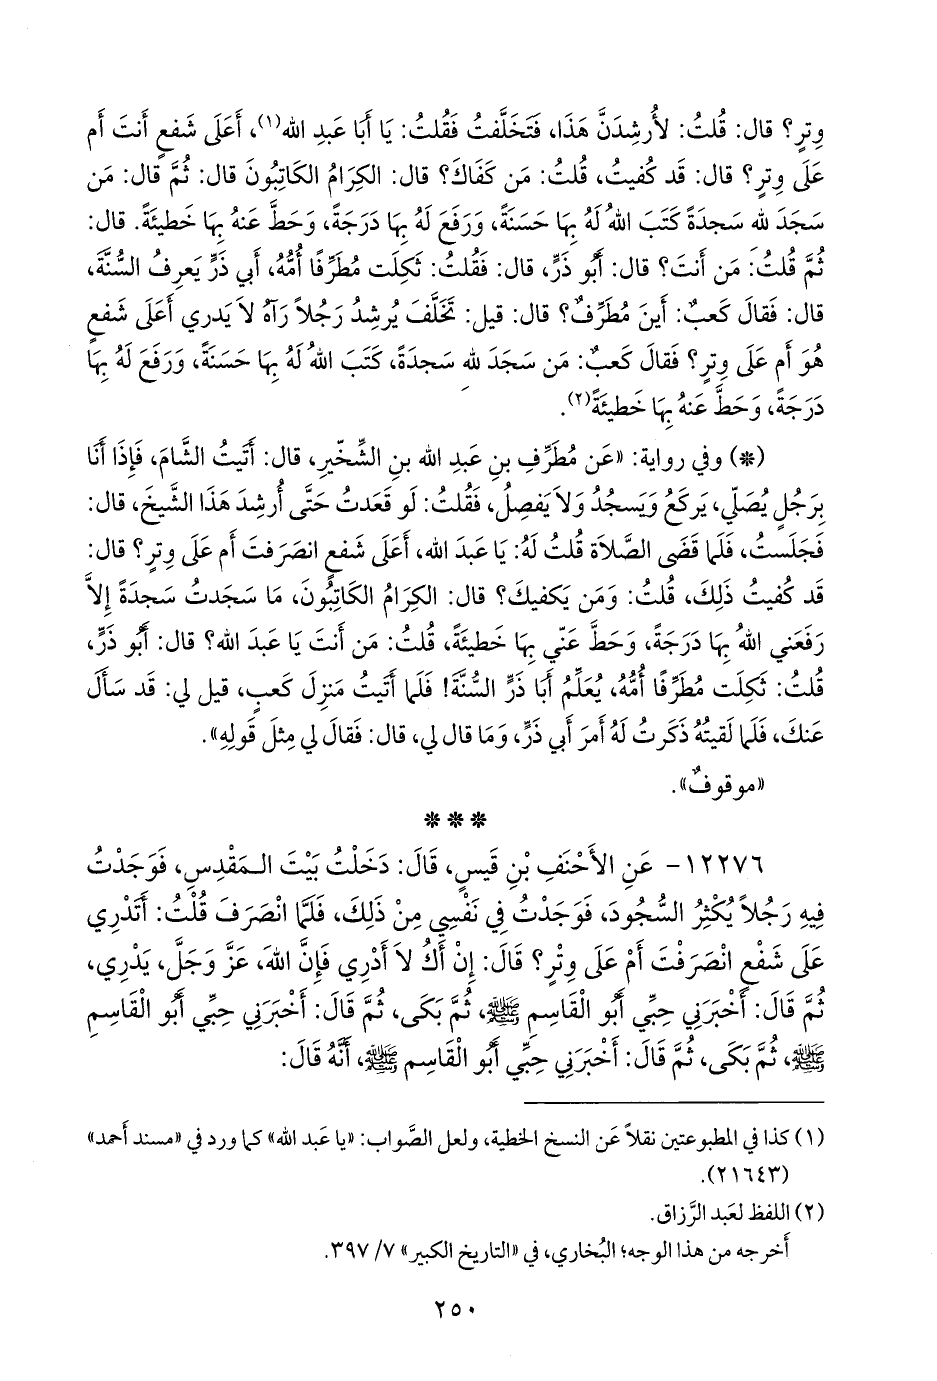 وِترٍ؟ قال: قُلتُ: لأُرشِدَنَّ هَذَا، فَتَخَلَّفتُ فَقُلتُ: يَا أَبَا عَبدِ الله(١)، أَعَلَى شَفعٍ أَنتَ أَم
عَلَى وِترٍ؟ قال: قَد كُفيتُ، قُلتُ: مَن كَفَاكَ؟ قال: الكِرَامُ الكَاتِبُونَ قال: ثُمَّ قال: مَن
سَجَدَ لله سَجدَةً كَتَبَ اللهُ لَهُ بِهَا حَسَنَةً، وَرَفَعَ لَهُ بِهَا دَرَجَةً، وَحَطَّ عَنهُ بِهَا خَطيئَةً. قال:
ثُمَّ قُلتُ: مَن أَنتَ؟ قال: أَبُو ذَرٍّ، قال: فَقُلتُ: ثَكِلَت مُطَرِّفًا أُمُّهُ، أَبي ذَرٍّ يَعرِفُ السُّنَّةَ،
قال: فَقالَ كَعبٌ: أَينَ مُطَرِّفٌ؟ قال: قيل: تَخَلَّفَ يُرشِدُ رَجُلاً رَآهُ لاَ يَدري أَعَلَى شَفعٍ
هُوَ أَم عَلَى وِترٍ؟ فَقالَ كَعبٌ: مَن سَجَدَ لله سَجدَةً، كَتَبَ اللهُ لَهُ بِهَا حَسَنَةً، وَرَفَعَ لَهُ بِهَا
دَرَجَةً، وَحَطَّ عَنهُ بِهَا خَطيئَةً(٢).
(*) وفي رواية: «عَن مُطَرِّفِ بنِ عَبدِ الله بنِ الشِّخّيرِ، قال: أَتَيتُ الشَّامَ، فَإِذَا أَنَا
بِرَجُلٍ يُصَلّي، يَركَعُ وَيَسجُدُ وَلاَ يَفصِلُ، فَقُلتُ: لَو قَعَدتُ حَتَّى أُرشِدَ هَذَا الشَّيخَ، قال:
فَجَلَستُ، فَلَما قَضَى الصَّلاَةَ قُلتُ لَهُ: يَا عَبدَ الله، أَعَلَى شَفعٍ انصَرَفتَ أَم عَلَى وِترٍ؟ قال:
قَد كُفيتُ ذَلِكَ، قُلتُ: وَمَن يَكفيكَ؟ قال: الكِرَامُ الكَاتِبُونَ، مَا سَجَدتُ سَجدَةً إِلاَّ
رَفَعَني اللهُ بِهَا دَرَجَةً، وَحَطَّ عَنّي بِهَا خَطيئَةً، قُلتُ: مَن أَنتَ يَا عَبدَ الله؟ قال: أَبُو ذَرٍّ،
قُلتُ: ثَكِلَت مُطَرِّفًا أُمُّهُ، يُعَلِّمُ أَبَا ذَرٍّ السُّنَّةَ! فَلَما أَتَيتُ مَنزِلَ كَعبٍ، قيل لي: قَد سَأَلَ
عَنكَ، فَلَما لَقيتُهُ ذَكَرتُ لَهُ أَمرَ أَبي ذَرٍّ، وَمَا قال لي، قال: فَقالَ لي مِثلَ قَولِهِ».
«موقوفٌ».
***
١٢٢٧٦- عَنِ الأَحْنَفِ بْنِ قَيسٍ، قَالَ: دَخَلْتُ بَيْتَ الـمَقْدِسِ، فَوَجَدْتُ
فِيهِ رَجُلاً يُكْثِرُ السُّجُودَ، فَوَجَدْتُ فِي نَفْسِي مِنْ ذَلِكَ، فَلَمَّا انْصَرَفَ قُلْتُ: أَتَدْرِي
عَلَى شَفْعٍ انْصَرَفْتَ أَمْ عَلَى وِتْرٍ؟ قَالَ: إِنْ أَكُ لاَ أَدْرِي فَإِنَّ اللهَ، عَزَّ وَجَلَّ، يَدْرِي،
ثُمَّ قَالَ: أَخْبَرَنِي حِبِّي أَبُو الْقَاسِمِ ﷺ، ثُمَّ بَكَى، ثُمَّ قَالَ: أَخْبَرَنِي حِبِّي أَبُو الْقَاسِمِ
ﷺ، ثُمَّ بَكَى، ثُمَّ قَالَ: أَخْبَرَنِي حِبِّي أَبُو الْقَاسِمِ ﷺ، أَنَّهُ قَالَ:
(١) كذا في المطبوعتين نقلاً عَن النسخ الخطية، ولعل الصَّواب: «يا عَبد الله» كما ورد في «مسند أَحمد»
(٢١٦٤٣).
(٢) اللفظ لعَبد الرَّزاق.
أَخرجه من هذا الوجه؛ البُخاري، في «التاريخ الكبير» ٧/ ٣٩٧.
٢٥٠